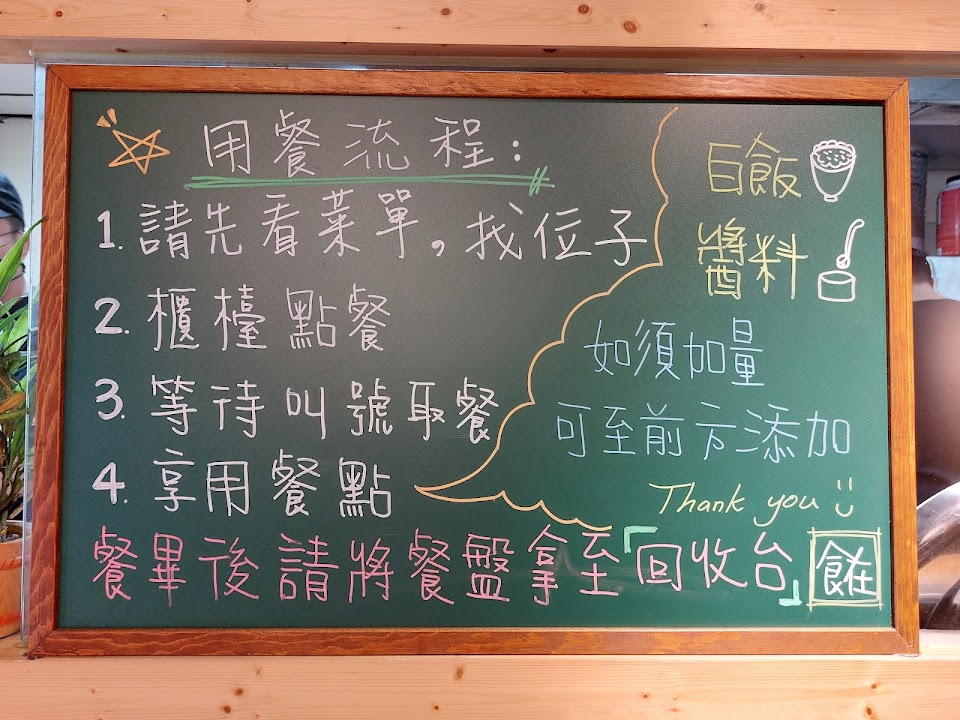 用餐流程:
1. 請先看菜單,找位子
2. 櫃檯點餐
3. 等待叫號取餐
4. 享用餐點
白飯
醬料
如須加量
可至前方添加
Thank you
餐畢後請將餐盤拿至「回收台」